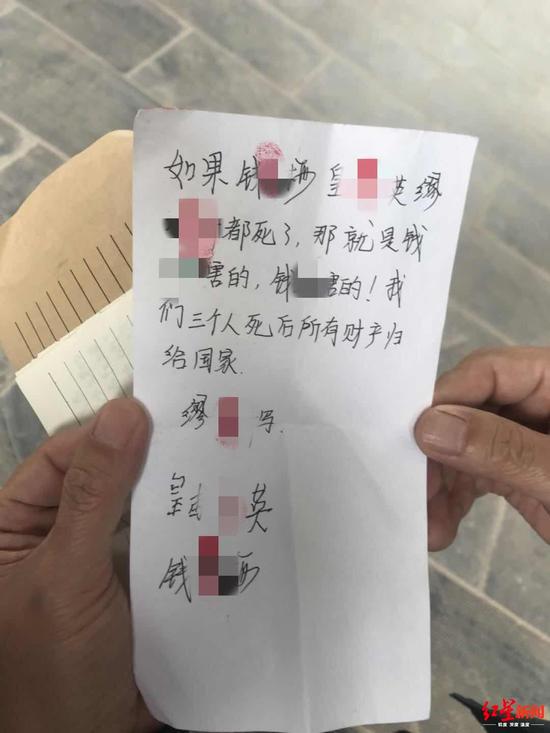 如果钱海皇英缪
都死了，那就是钱
害的，钱害的！我
们三个人死后所有财产归
给国家.
缪写.
皇甫英
钱
红星新闻
鲜度 深度 温度